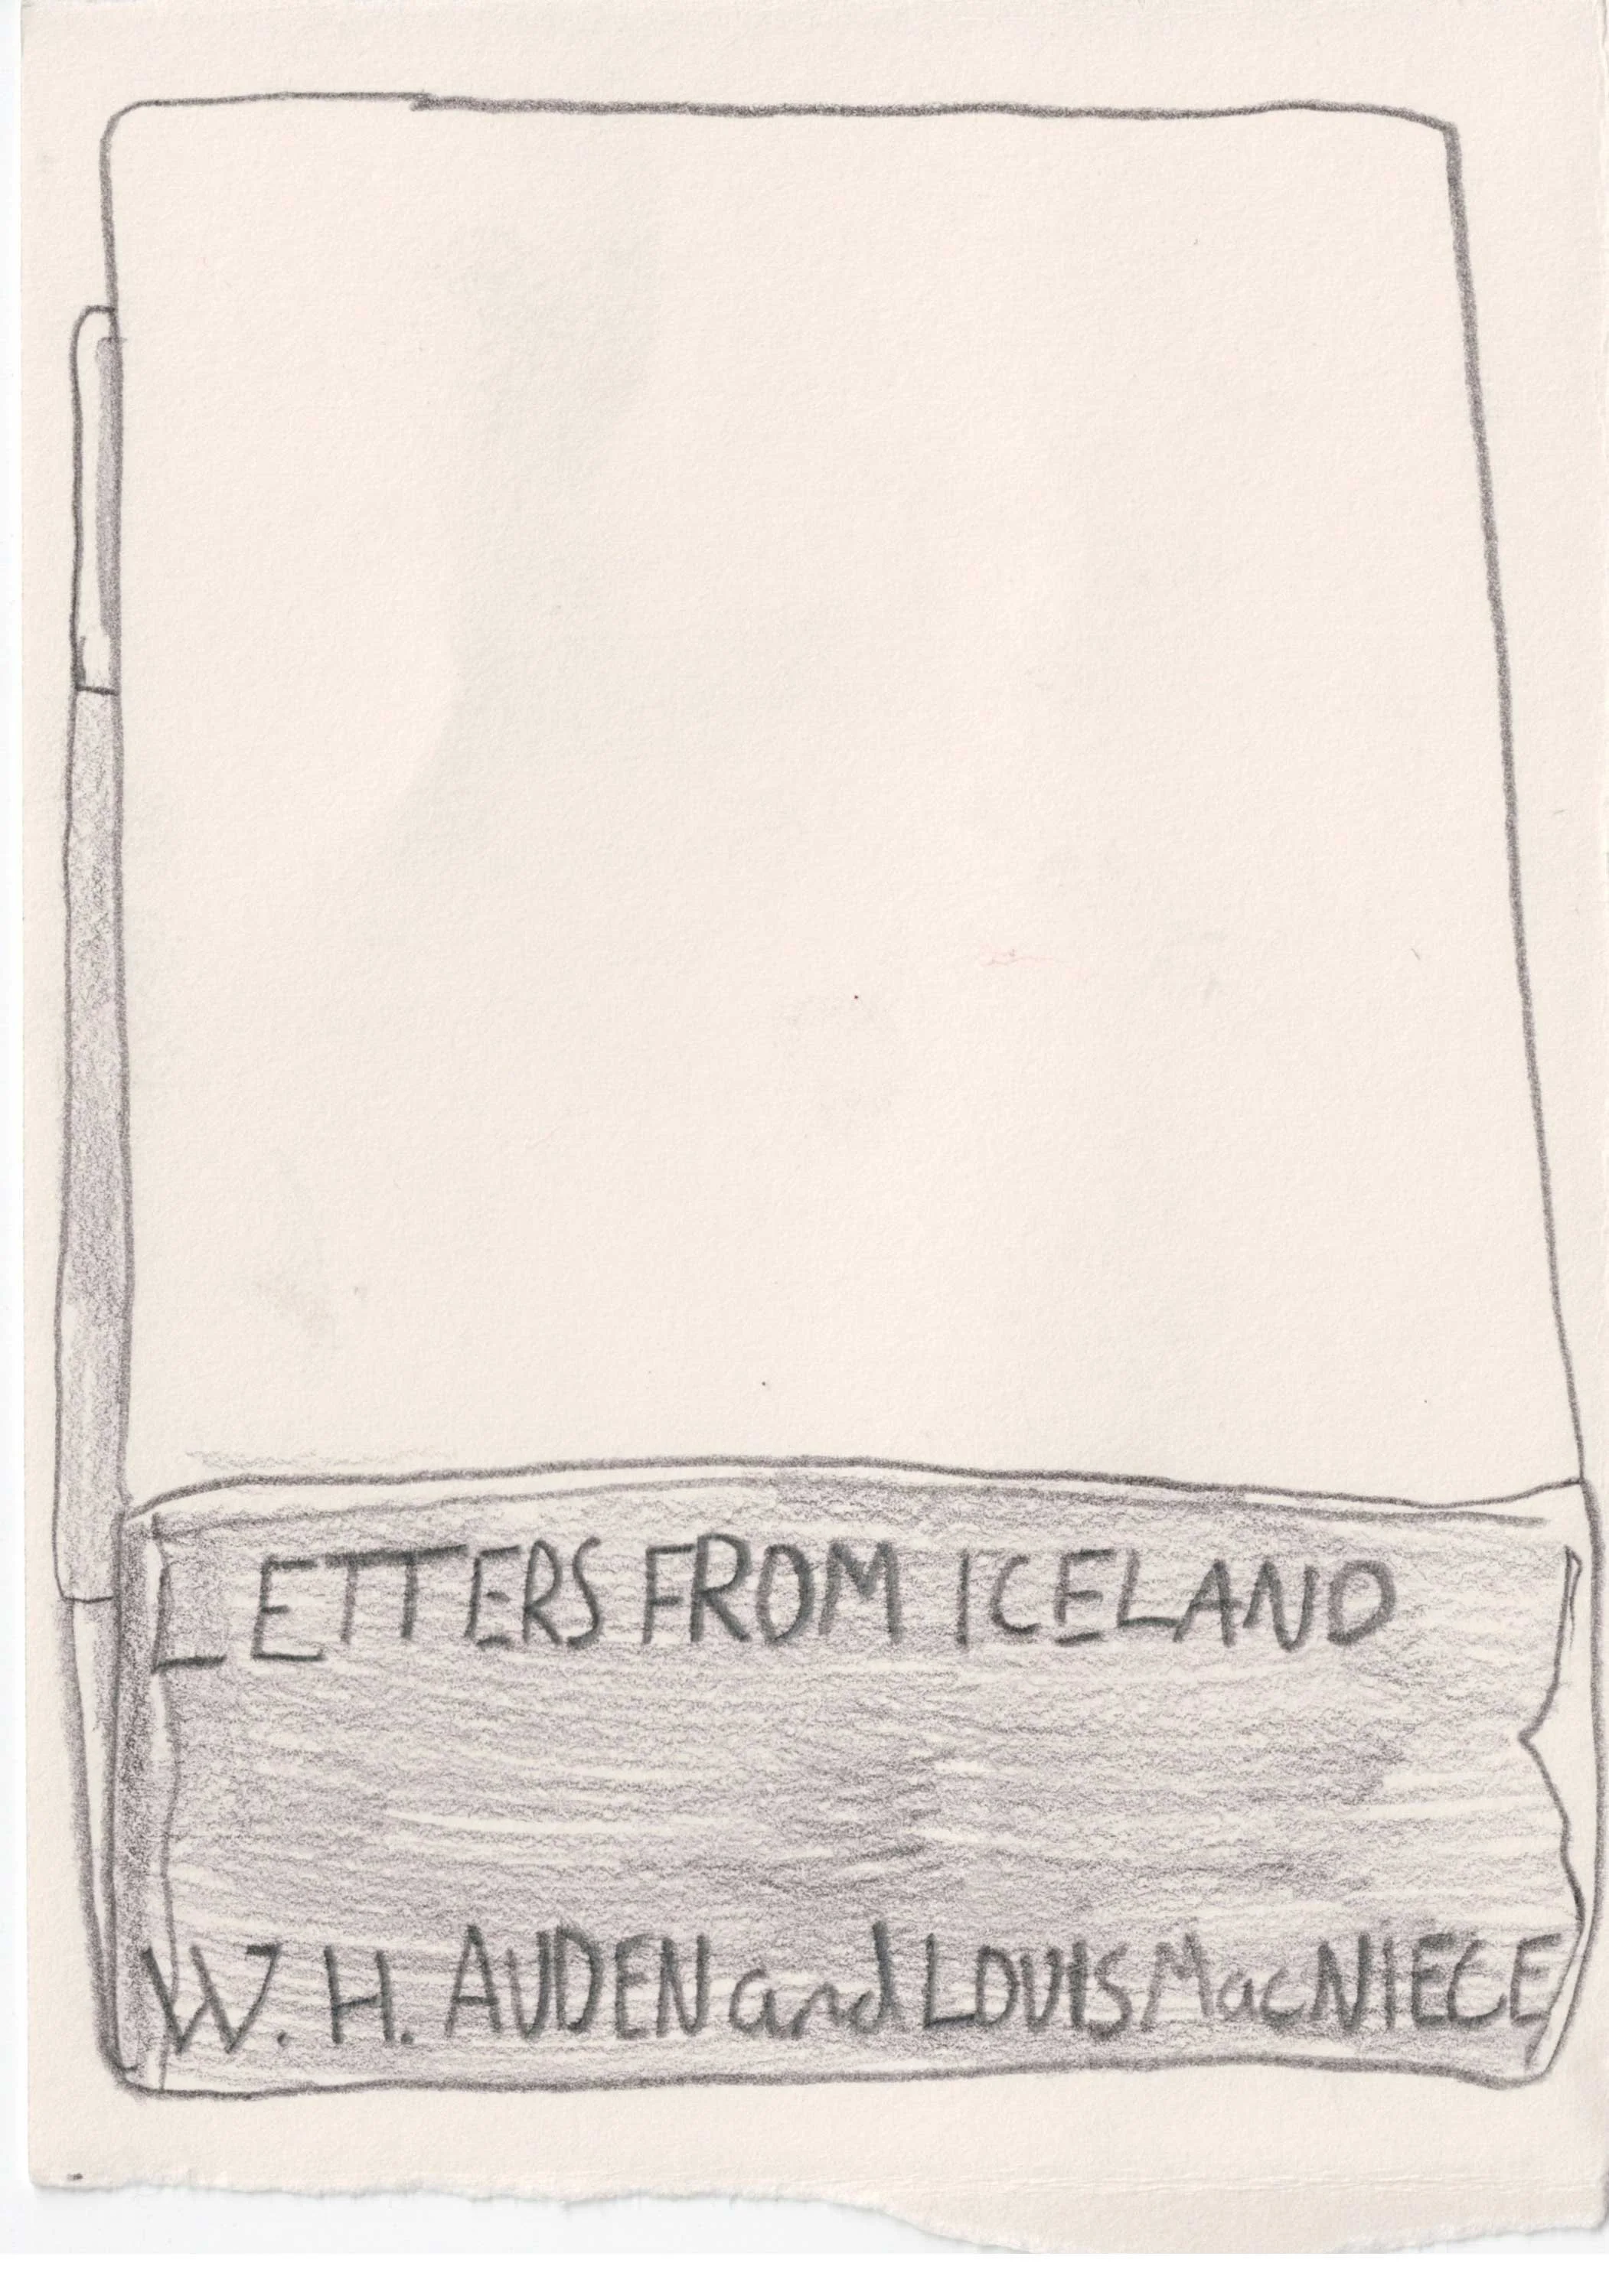 LETTERS FROM ICELAND
W. H. AUDEN and LOUIS MacNIECE